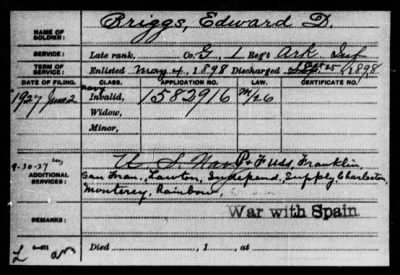 NAME OF SOLDIER: Briggs, Edward D.
SERVICE: Late rank, Co. G, 1 Reg't Ark Inf
TERM OF SERVICE: Enlisted May 4, 1898 Discharged 25, 1898
DATE OF FILING. CLASS. APPLICATION NO. LAW. CERTIFICATE NO.
1927 June 2 Navy Invalid, 1582916
Widow,
Minor,
9-30-27
ADDITIONAL SERVICES: U. S. Navy Franklin,
San Fran., Lawton, Independ, Supply, Charleston,
Monterey, Rainbow,
REMARKS: War with Spain
Died , 1 , at